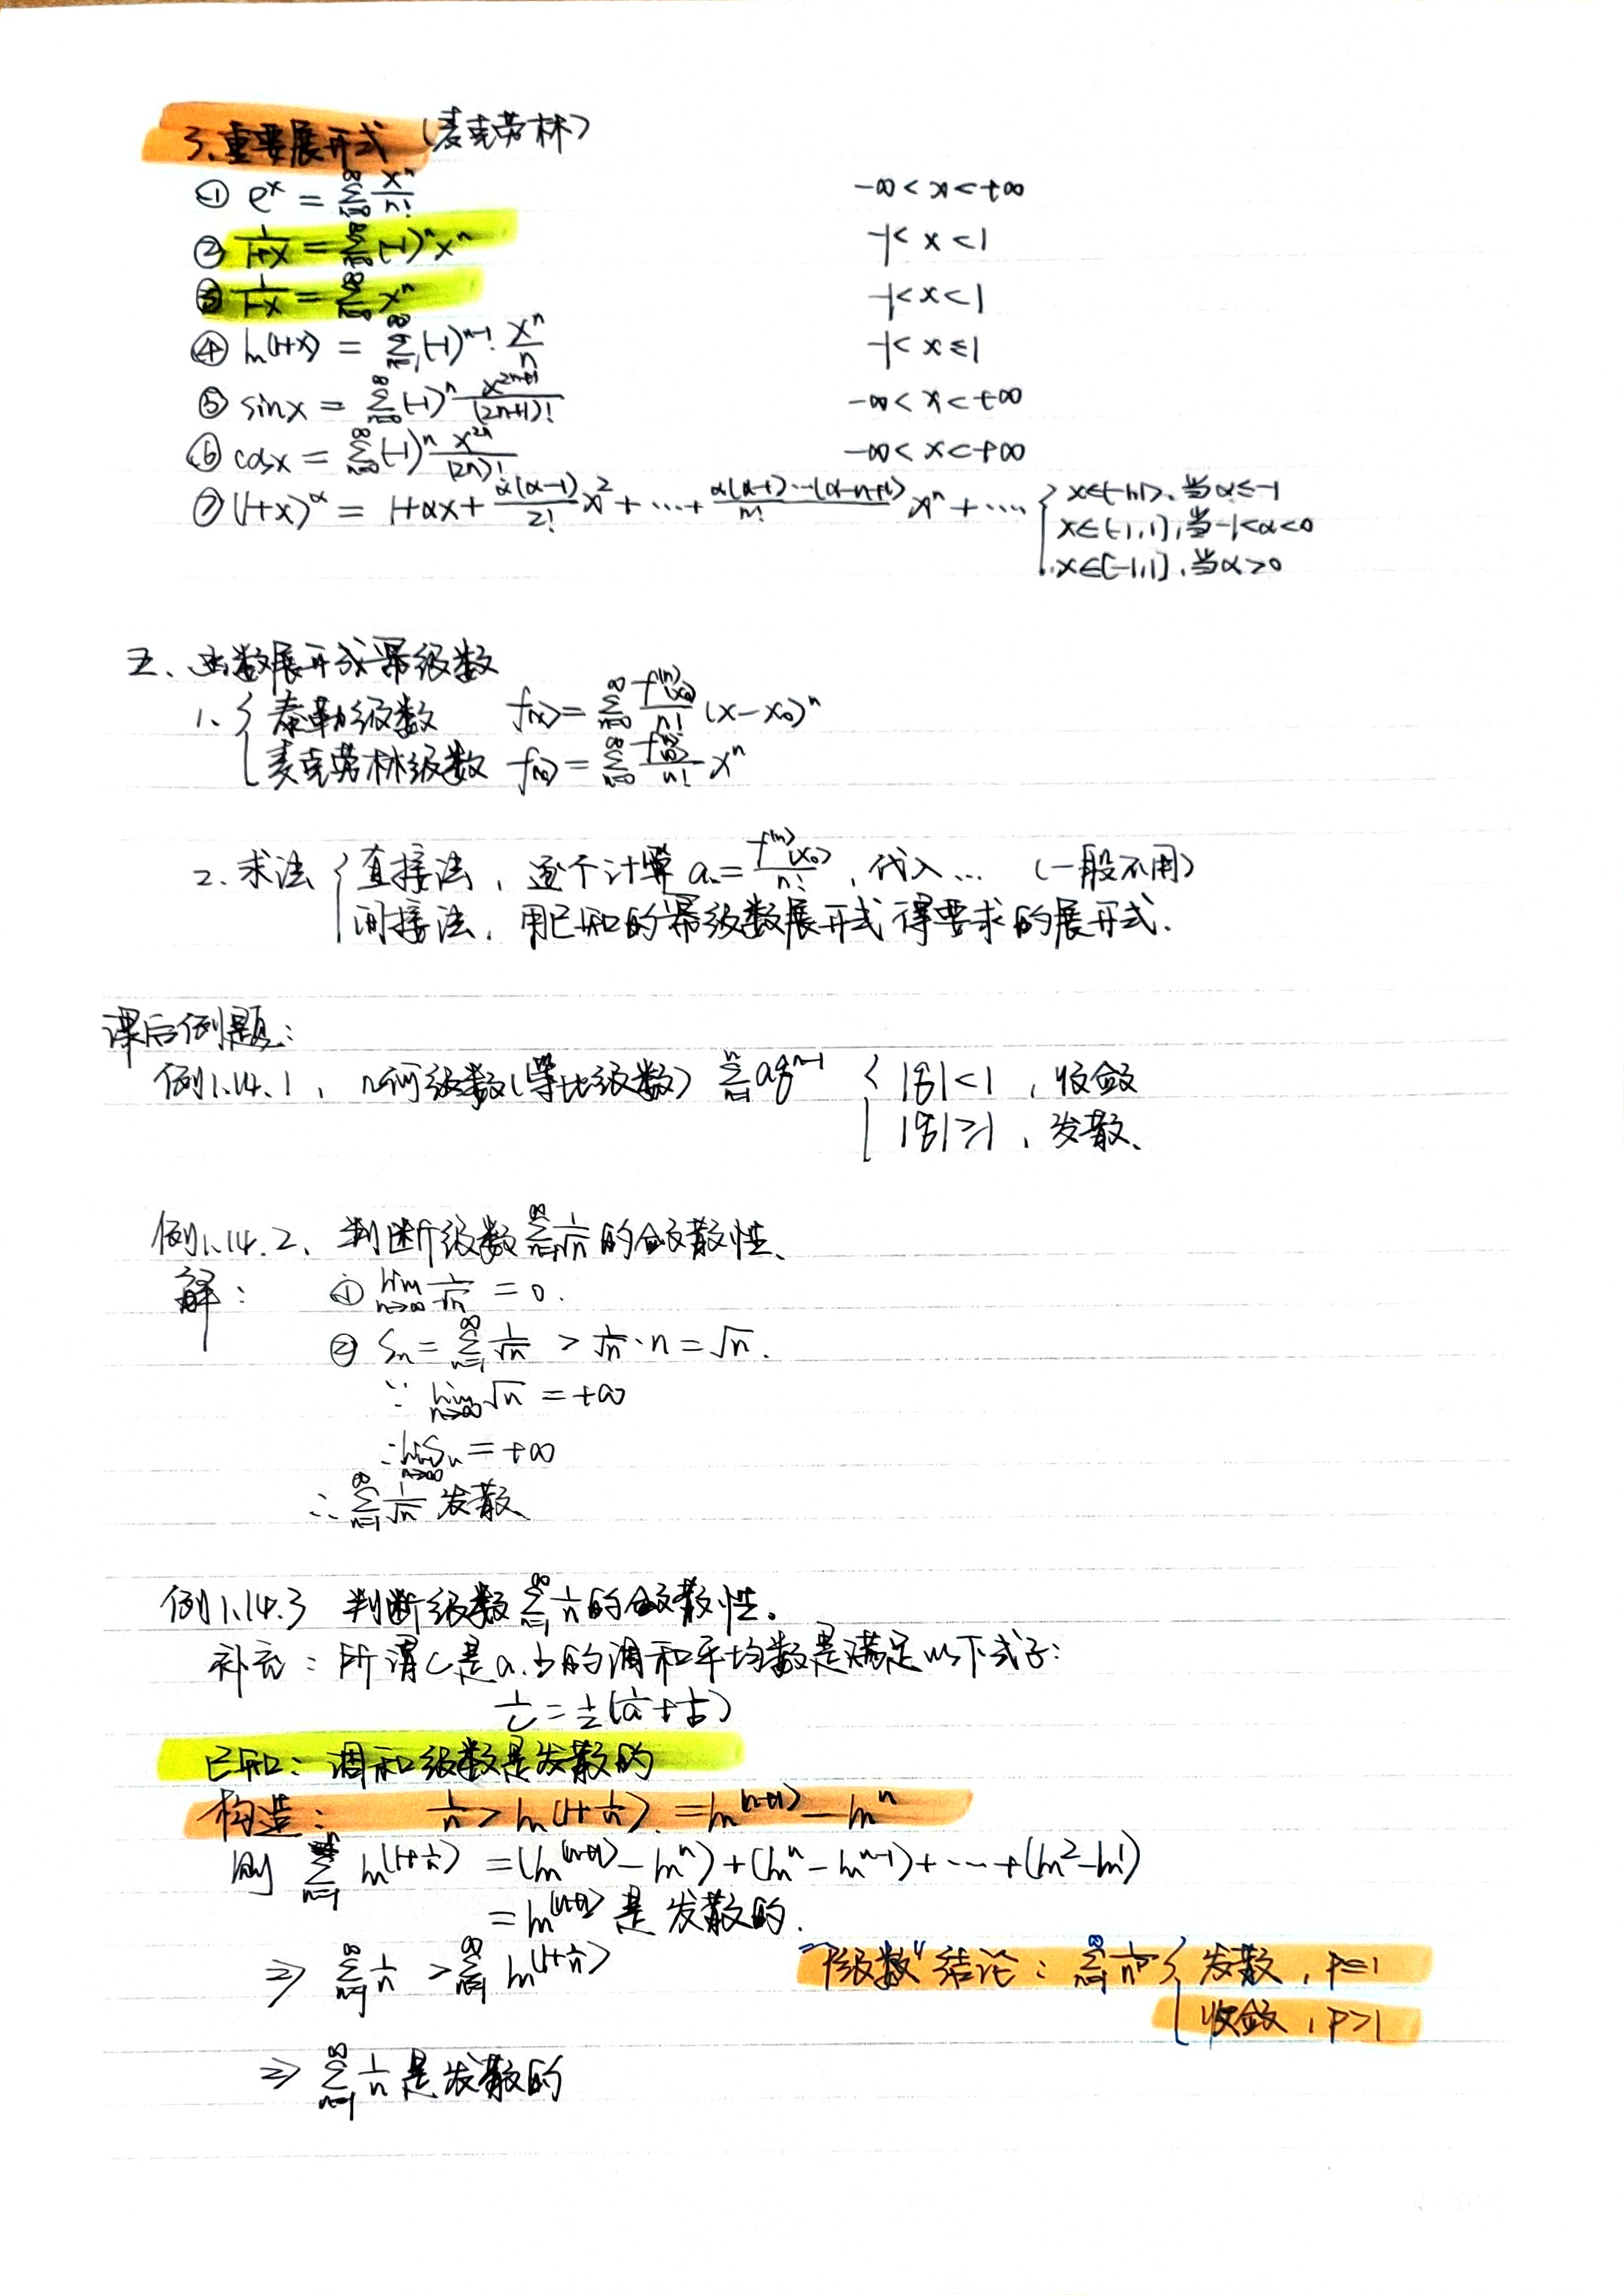 3、重要展开式 (麦克劳林)
① e^x = ∑_{n=0}^{∞} x^n/n!    -∞ < x < +∞
② 1/(1+x) = ∑_{n=0}^{∞} (-1)^n x^n    -1 < x < 1
③ 1/(1-x) = ∑_{n=0}^{∞} x^n    -1 < x < 1
④ ln(1+x) = ∑_{n=1}^{∞} (-1)^{n-1}·x^n/n    -1 < x ≤ 1
⑤ sinx = ∑_{n=0}^{∞} (-1)^n x^{2n+1}/(2n+1)!    -∞ < x < +∞
⑥ cosx = ∑_{n=0}^{∞} (-1)^n x^{2n}/(2n)!    -∞ < x < +∞
⑦ (1+x)^α = 1+αx+ α(α-1)/2! x^2 + ... + α(α-1)...(α-n+1)/n! x^n + .... { x∈(-1,1), 当α≤-1
x∈(-1,1], 当-1<α<0
x∈[-1,1], 当α>0
五、函数展开成幂级数
1、{ 泰勒级数 f(x) = ∑_{n=0}^{∞} f^{(n)}(x_0)/n! (x-x_0)^n
麦克劳林级数 f(x) = ∑_{n=0}^{∞} f^{(n)}(0)/n! x^n
2、求法 { 直接法, 逐个计算 a_n = f^{(n)}(x_0)/n!, 代入... (一般不用)
间接法, 用已知的幂级数展开式得要求的展开式.
课后例题:
例1.14.1, 几何级数(等比级数) ∑_{n=1}^{n} aq^{n-1} { |q|<1, 收敛
|q|≥1, 发散、
例1.14.2、判断级数 ∑_{n=1}^{∞} 1/√n 的敛散性、
解: ① lim_{n→∞} 1/√n = 0.
② S_n = ∑_{n=1}^{∞} 1/√n > 1/√n·n = √n.
∵ lim_{n→∞} √n = +∞
∴ lim_{n→∞} S_n = +∞
∴ ∑_{n=1}^{∞} 1/√n 发散
例1.14.3 判断级数 ∑_{n=1}^{∞} 1/n 的敛散性。
补充: 所谓c是a、b的调和平均数是满足以下式子:
1/c = 1/2(1/a + 1/b)
已知: 调和级数是发散的
构造: 1/n > ln(1+1/n) = ln^{(n+1)} - ln^n
则 ∑_{n=1} ln^{(1+1/n)} = (ln^{(n+1)} - ln^n) + (ln^n - ln^{n-1}) + ... + (ln^2 - ln^1)
= ln^{(n+1)} 是发散的.
⇒ ∑_{n=1}^{∞} 1/n > ∑_{n=1}^{∞} ln^{(1+1/n)}    "P级数" 结论: ∑_{n=1}^{∞} 1/n^p { 发散, P≤1
收敛, P>1
⇒ ∑_{n=1}^{∞} 1/n 是发散的